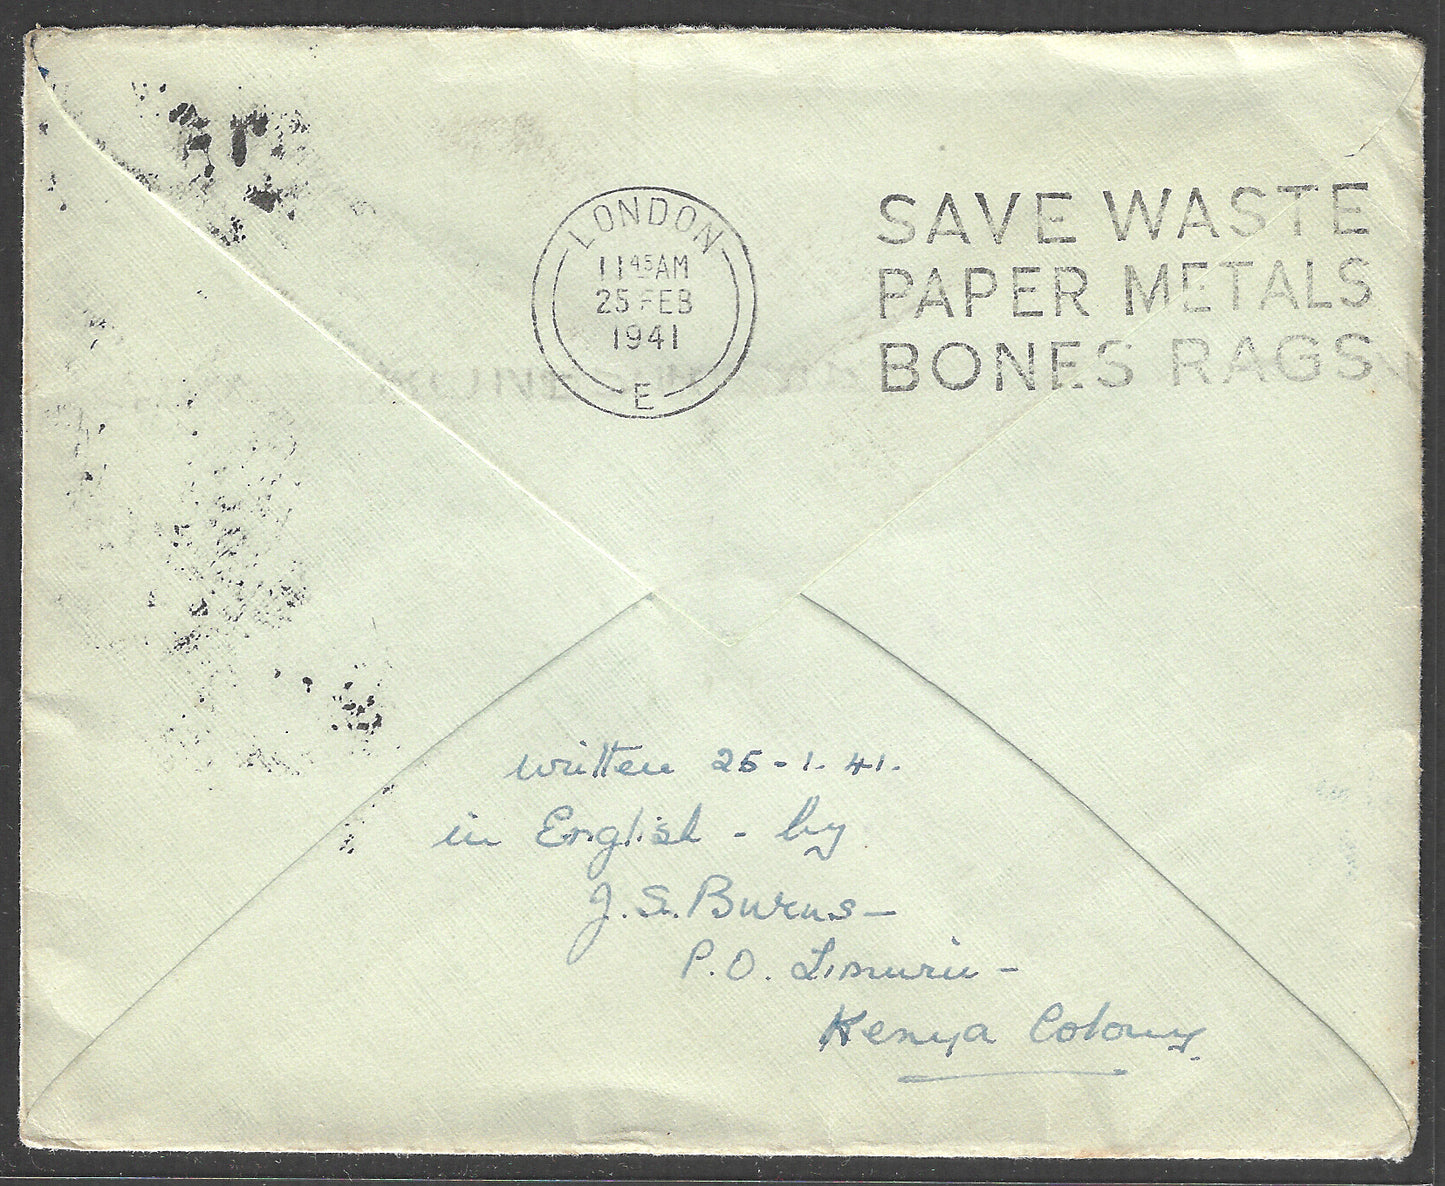 LONDON
11 45 AM
25 FEB
1941
E
SAVE WASTE
PAPER METALS
BONES RAGS
written 25-1-41.
in English - by
J. S. Burns -
P.O. Limuru -
Kenya Colony